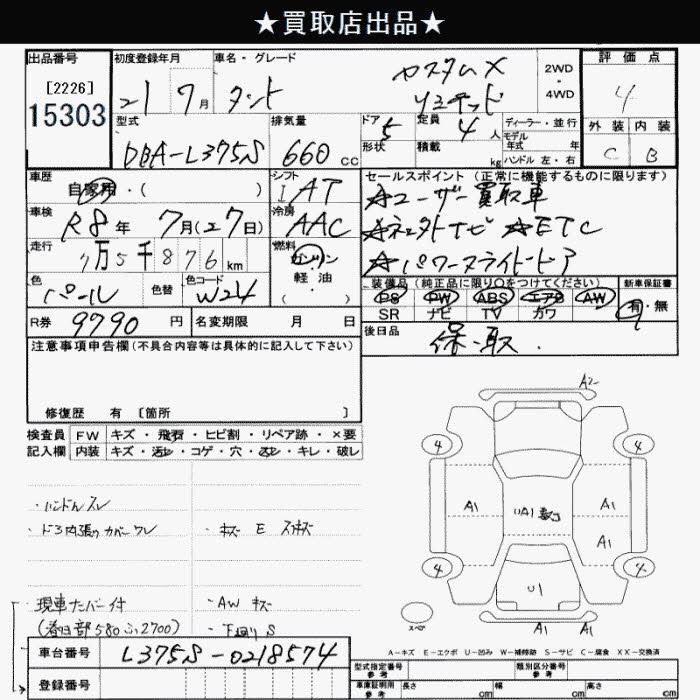 ★買取店出品★
出品番号 初度登録年月 車名・グレード 評価点
[2226]
15303
21 7月 タント カスタムX リミテッド
2WD・4WD
4
型式 排気量 ドア 定員 ディーラー・並行 外装 内装
DBA-L375S 660cc 5 4人 モデル年式 年 C B
形状 積載 kg ハンドル 左・右
車歴 シフト セールスポイント (正常に機能するものに限ります)
自家用・( ) I AT ☆ユーザー買取車
車検 冷房
R8年 7月(27日) AAC ☆ ナビ ☆ETC
走行 燃料
7万5千876km ガソリン ☆パワースライドドア
色 色替 色コード 軽油
パール W24 ( ・ )
装備品 (純正品に限り○をつけてください) 新車保証書
PS PW ABS エアB AW 有・無
SR ナビ TV カワ
R券 9790円 名変期限 月 日 後日品 保・取
注意事項申告欄(不具合内容等は具体的に記入して下さい)
修復歴 有 [箇所 ]
検査員 FW キズ・飛石・ヒビ割・リペア跡・×要
記入欄 内装 キズ・汚レ・コゲ・穴・スレ・キレ・破レ
A2
4 4
A1 UA1 A1
A1
4 4
U1
スペア A1 A1
・ハンドルスレ
・ドア内張りカバーワレ ・キズ E スリキズ
現車ナンバー付 ・AW キズ
(春日部580ふ2700) ・下廻りS
A-キズ E-エクボ U-凹み W-補修跡 S-サビ C-腐食 XX-交換済
車台番号 L375S-0218574
登録番号
型式指定番号 参考 類別区分番号 参考
車庫証明用参考 長さ cm 幅 cm 高さ cm